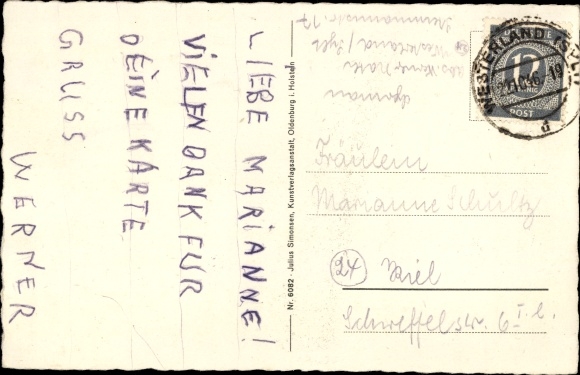 LIEBE MARIANNE!
VIELEN DANK FÜR
DEINE KARTE
GRUSS
WERNER
Nr. 6082 · Julius Simonsen, Kunstverlagsanstalt, Oldenburg i. Holstein
Westerland / Sylt
WESTERLAND (SYLT)
12
POST
d
Fräulein
Marianne Schultz
24 Kiel
Scheffelstr. 6 I. l.